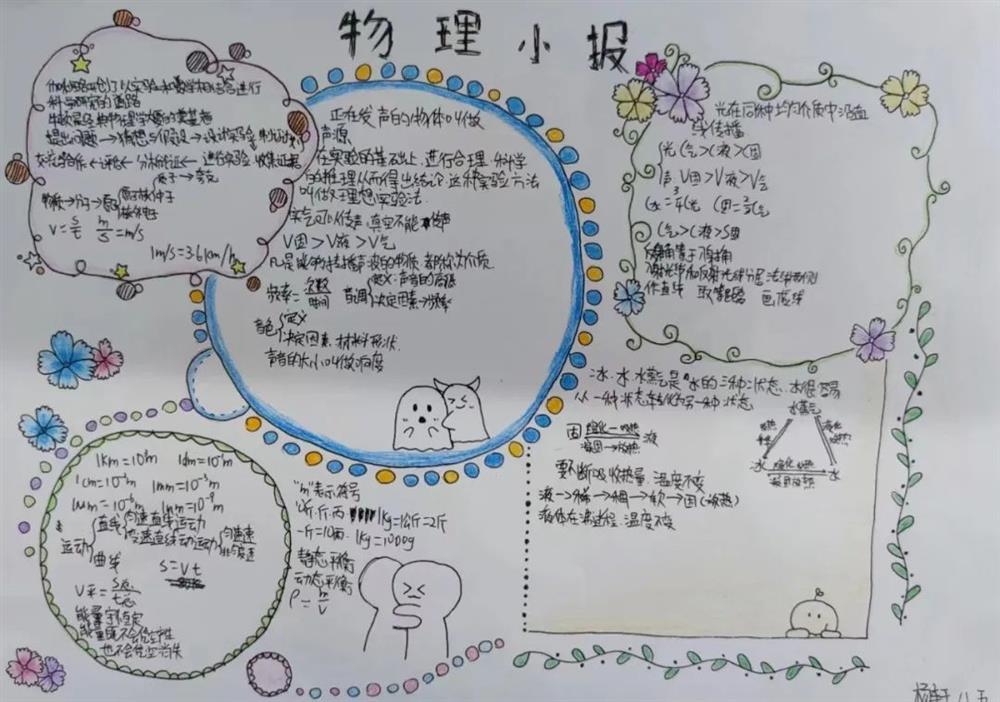 物理小报
伽利略开创了以实验和数学相结合进行
科学研究的道路
牛顿是经典物理学大厦的奠基者
提出问题→猜想与假设→设计实验 制订计划
交流合作←评估←分析论证←进行实验 收集证据
质子→夸克
物质→分子→原子
原子核 中子
核外电子
V=s/t m/s=m/s
1m/s=3.6km/h
正在发声的物体叫做
声源
在实验的基础上,进行合理、科学
的推理从而得出结论.这种实验方法
叫做理想实验法.
空气可以传声,真空不能传声
V固>V液>V气
凡是能够传播声波的物质都称为介质
频率=次数/时间 音调 定义:声音的高低
决定因素→频率
音色 定义
决定因素.材料形状.
声音的大小叫做响度
光在同种均匀介质中沿直
线传播
光C气>C液>C固
声 V固>V液>V气
C水=3/4C光 C固=2/3C气
C气>C液>C固
反射角等于入射角
冰.水.水蒸气是水的三种状态.水很容易
从一种状态转化为另一种状态
水蒸气
固 熔化—吸热 液
凝固→放热
冰 熔化 吸热 水
凝固放热
要不断吸收热量,温度不变
液→稀→稠→软→固(放热)
1km=10³m 1dm=10⁻¹m
1cm=10⁻²m 1mm=10⁻³m
1μm=10⁻⁶m 1nm=10⁻⁹m
运动 直线 匀速直线运动
变速直线运动
曲线
S=Vt
V平=S总/t总
能量守恒定
能量既不会凭空产生
也不会凭空消失
"m"表示符号
1kg=1公斤=2斤
一斤=10两. 1kg=1000g
静态平衡
动态平衡
ρ=m/V